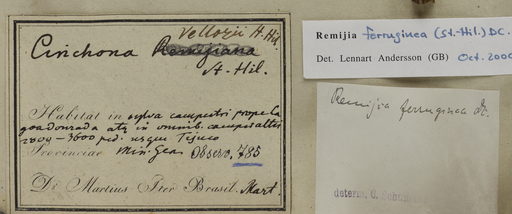 Vellozii St. Hil.
Cinchona Remijiana
St. Hil.
Habitat in sylva campestri prope la
goadourada atq in omnib. campis altis
2000-3600 ped. usque Tejuco
Provinciae Min. Ger. Observ. 785
Dr. Martius Iter Brasil. Mart.
Remijia ferruginea (St.-Hil.) DC.
Det. Lennart Andersson (GB) Oct. 2000
Remijia ferruginea DC.
determ.